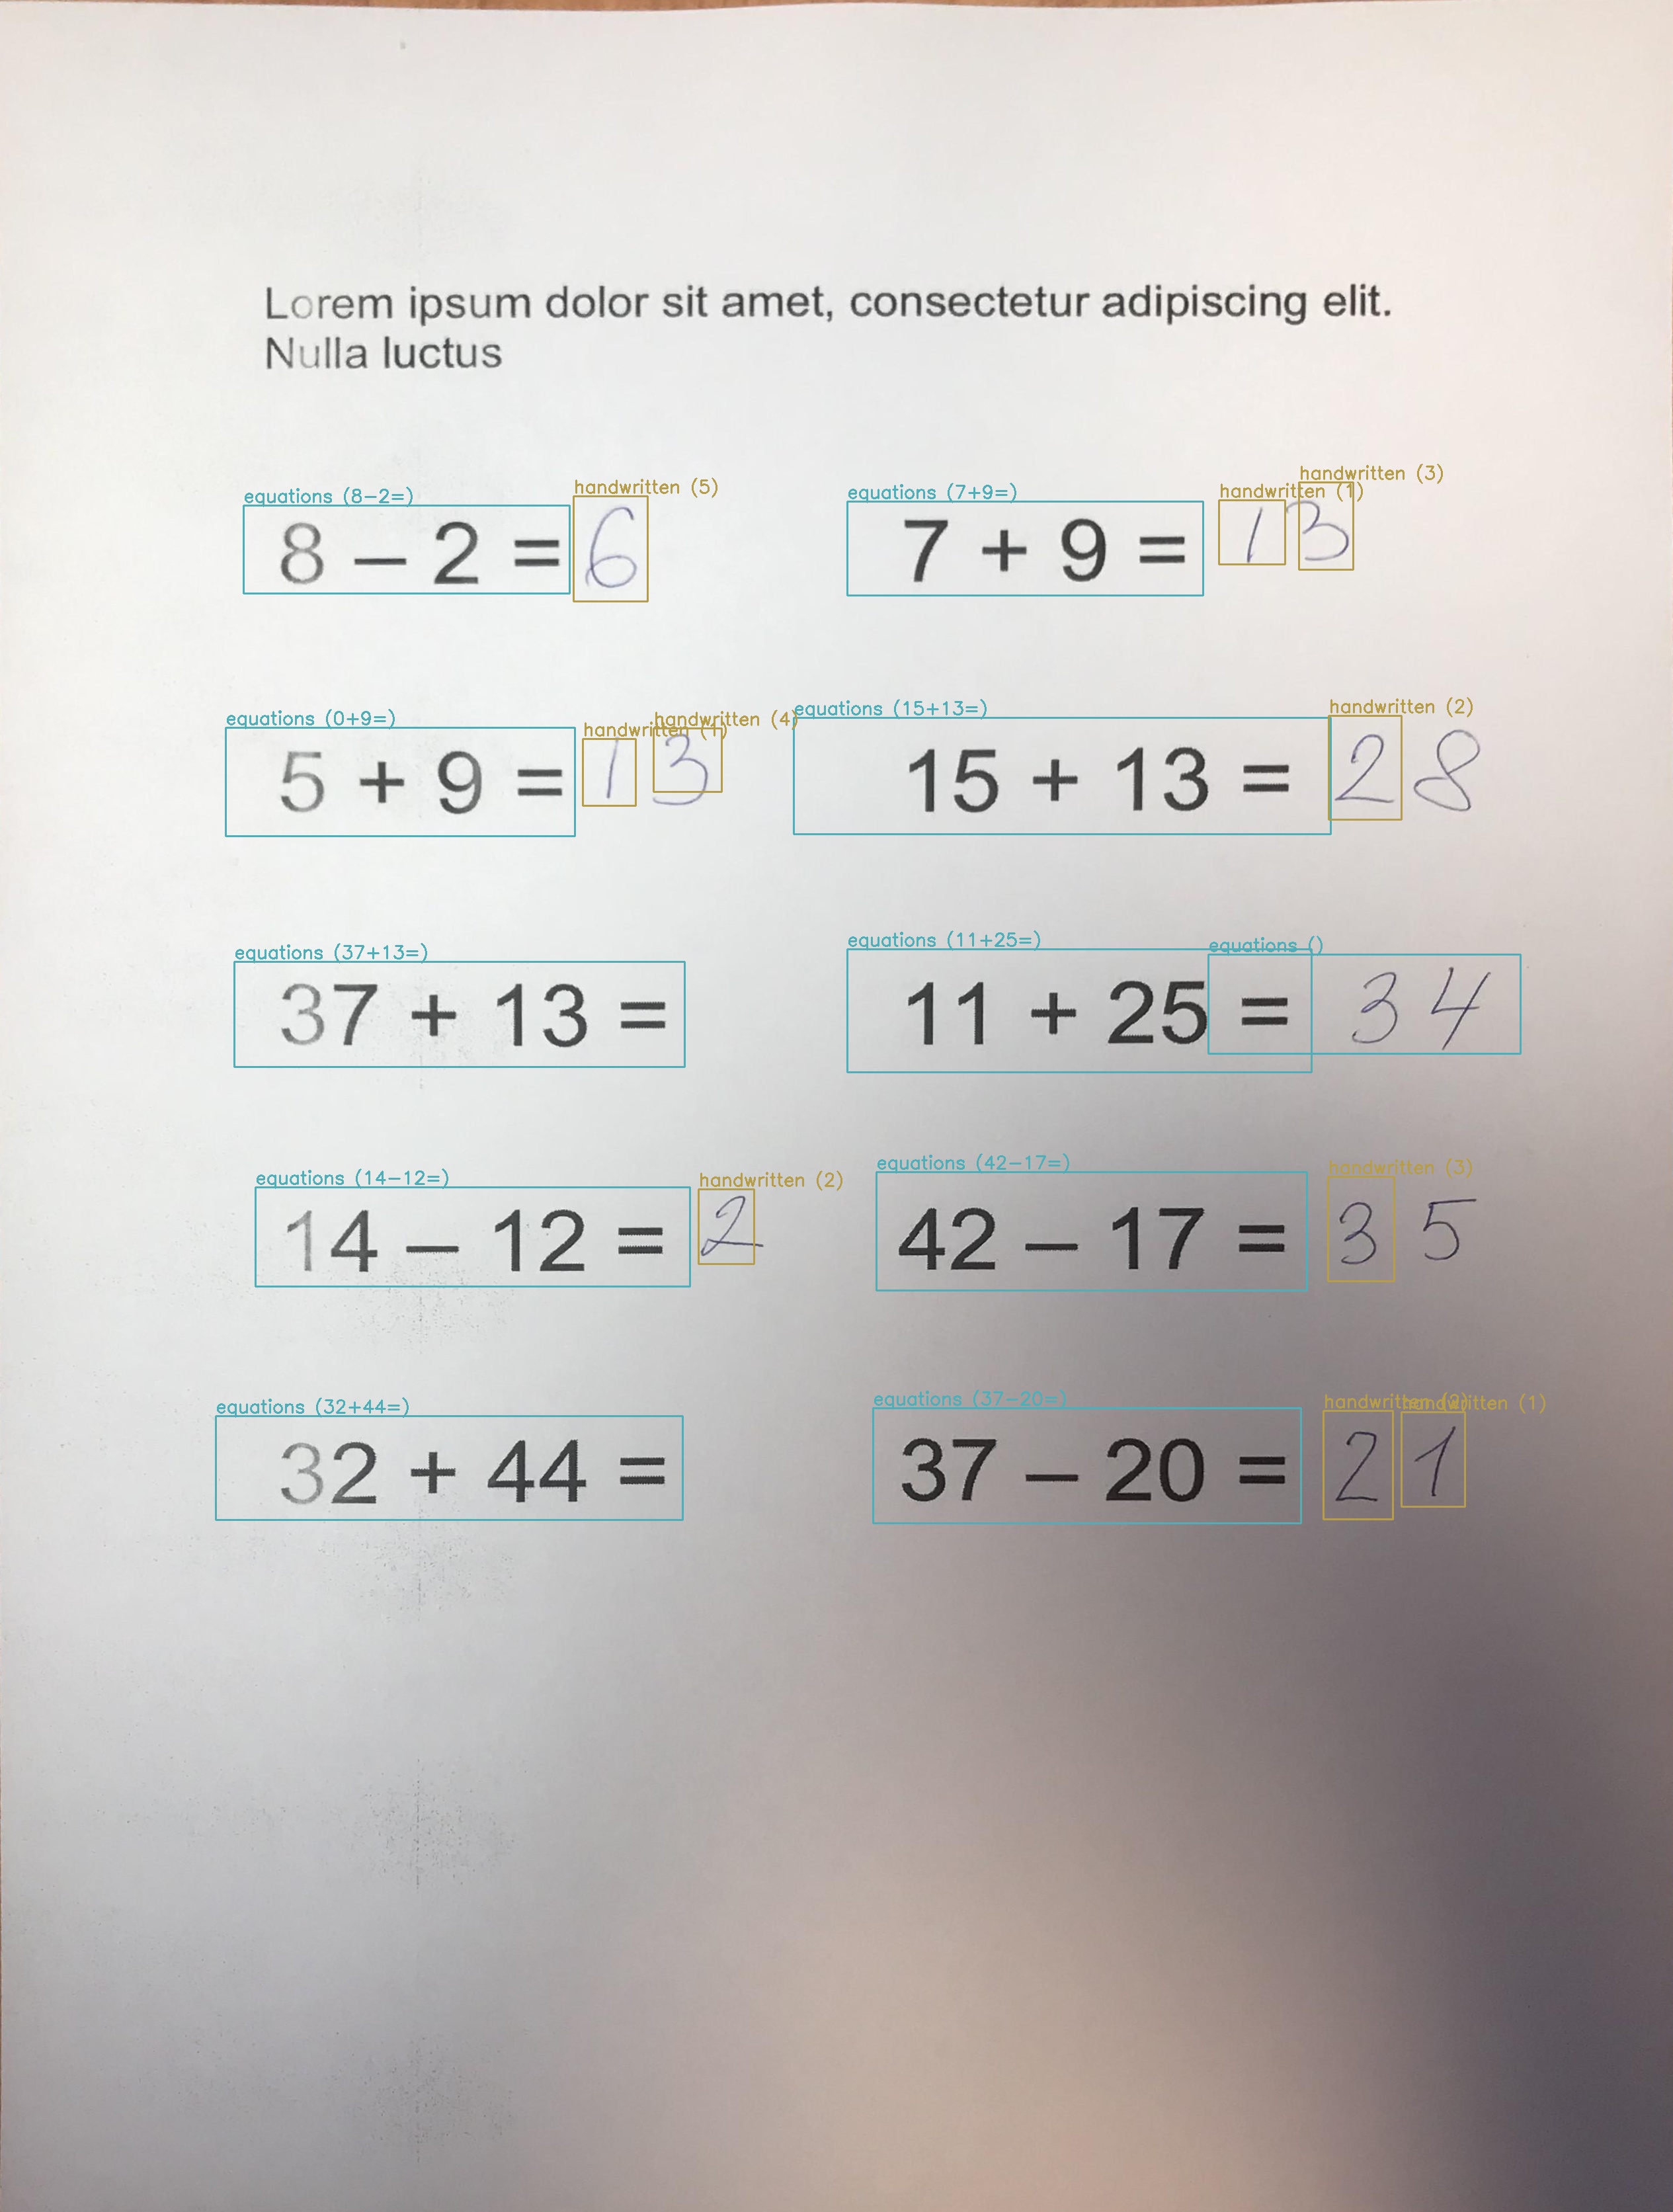 Lorem ipsum dolor sit amet, consectetur adipiscing elit.
Nulla luctus
handwritten (3)
equations (8-2=) handwritten (5) equations (7+9=) handwritten (1)
8 – 2 = 6 7 + 9 = 13
equations (0+9=) handwritten (1) handwritten (4) equations (15+13=) handwritten (2)
5 + 9 = 13 15 + 13 = 28
equations (37+13=) equations (11+25=) equations ()
37 + 13 = 11 + 25 = 34
equations (14-12=) handwritten (2) equations (42-17=) handwritten (3)
14 – 12 = 2 42 – 17 = 35
equations (32+44=) equations (37-20=) handwritten (2) handwritten (1)
32 + 44 = 37 – 20 = 21